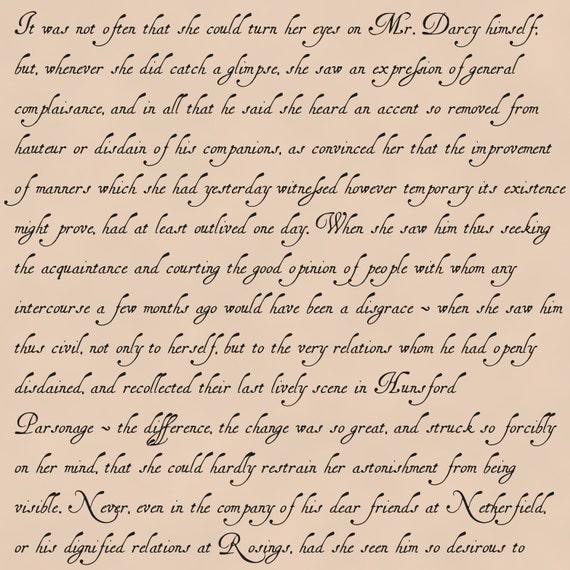 It was not often that she could turn her eyes on Mr. Darcy himself;
but, whenever she did catch a glimpse, she saw an expression of general
complaisance, and in all that he said she heard an accent so removed from
hauteur or disdain of his companions, as convinced her that the improvement
of manners which she had yesterday witnessed however temporary its existence
might prove, had at least outlived one day. When she saw him thus seeking
the acquaintance and courting the good opinion of people with whom any
intercourse a few months ago would have been a disgrace ~ when she saw him
thus civil, not only to herself, but to the very relations whom he had openly
disdained, and recollected their last lively scene in Hunsford
Parsonage ~ the difference, the change was so great, and struck so forcibly
on her mind, that she could hardly restrain her astonishment from being
visible. Never, even in the company of his dear friends at Netherfield,
or his dignified relations at Rosings, had she seen him so desirous to